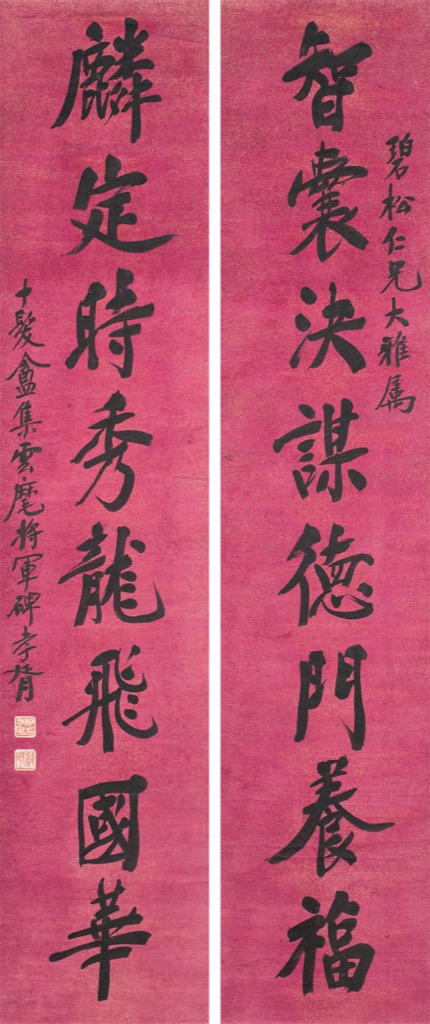 碧松仁兄大雅属
智囊決謀德門養福
麟定時秀龍飛國華
十髮盦集雲麾將軍碑孝胥